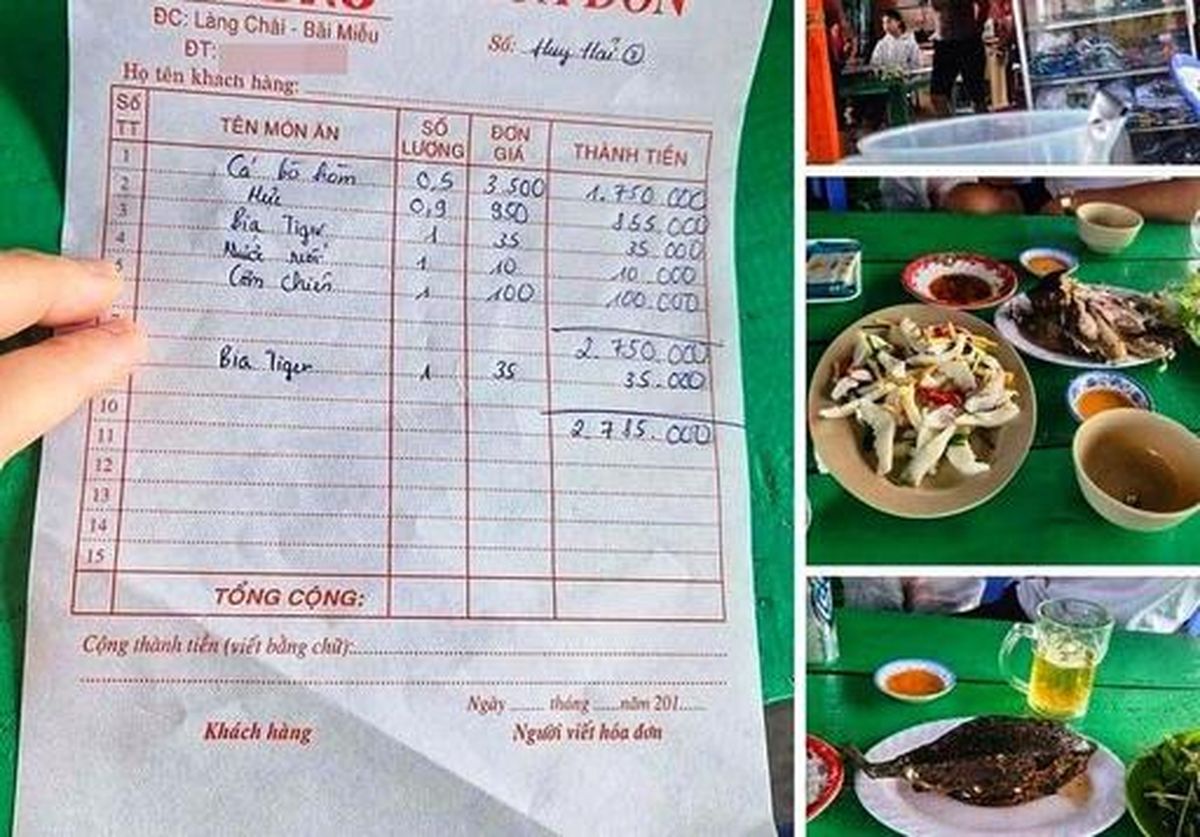 ĐC: Làng Chài - Bãi Miễu
ĐT:
Số: Huy Hải 2
Họ tên khách hàng:
Số TT TÊN MÓN ĂN SỐ LƯỢNG ĐƠN GIÁ THÀNH TIỀN
1 Cá bò hòm 0,5 3.500 1.750.000
2 Mực 0,9 950 855.000
3 Bia Tiger 1 35 35.000
4 Nước suối 1 10 10.000
5 Cơm chiên 1 100 100.000
2.750.000
Bia Tiger 1 35 35.000
10
2.785.000
11
12
13
14
15
TỔNG CỘNG:
Cộng thành tiền (viết bằng chữ):
Ngày ...... tháng ......năm 201......
Khách hàng Người viết hóa đơn